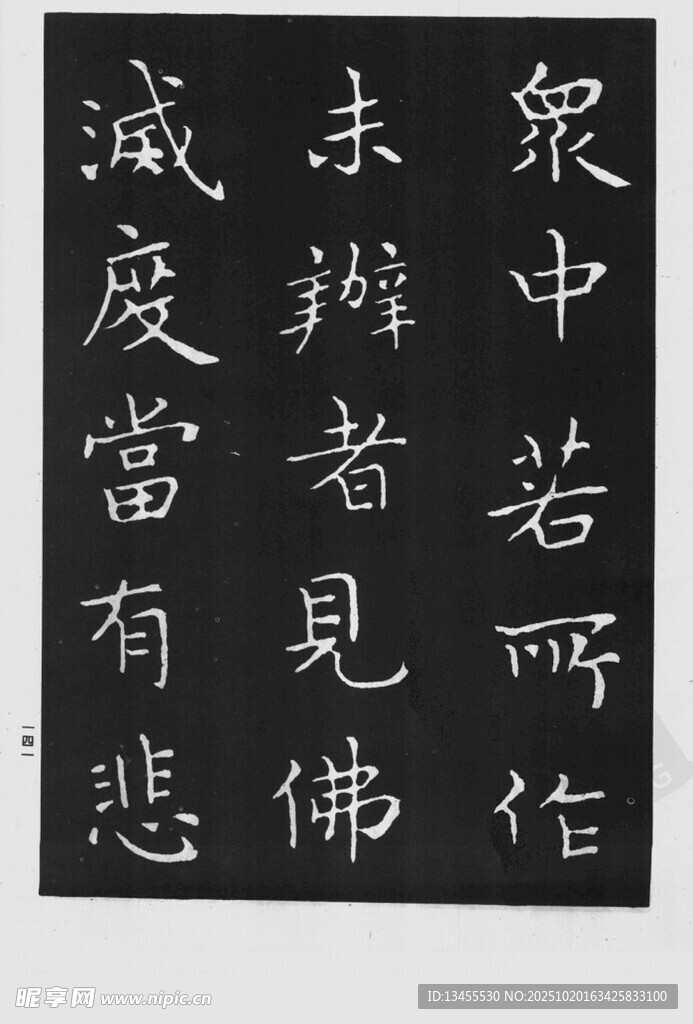 眾中若所作
未辦者見佛
滅度當有悲
一四一
昵享网 www.nipic.cn
ID:13455530 NO:20251020163425833100